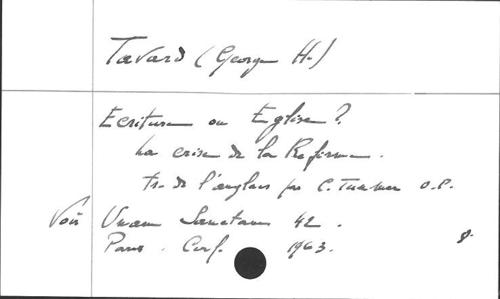 Tavard (George H.)
Ecriture ou Eglise ?
La crise de la Réforme.
Tr. de l'anglais par C. Tunmer O.P.
Voir Unam Sanctam 42.
Paris. Cerf. 1963. 8.